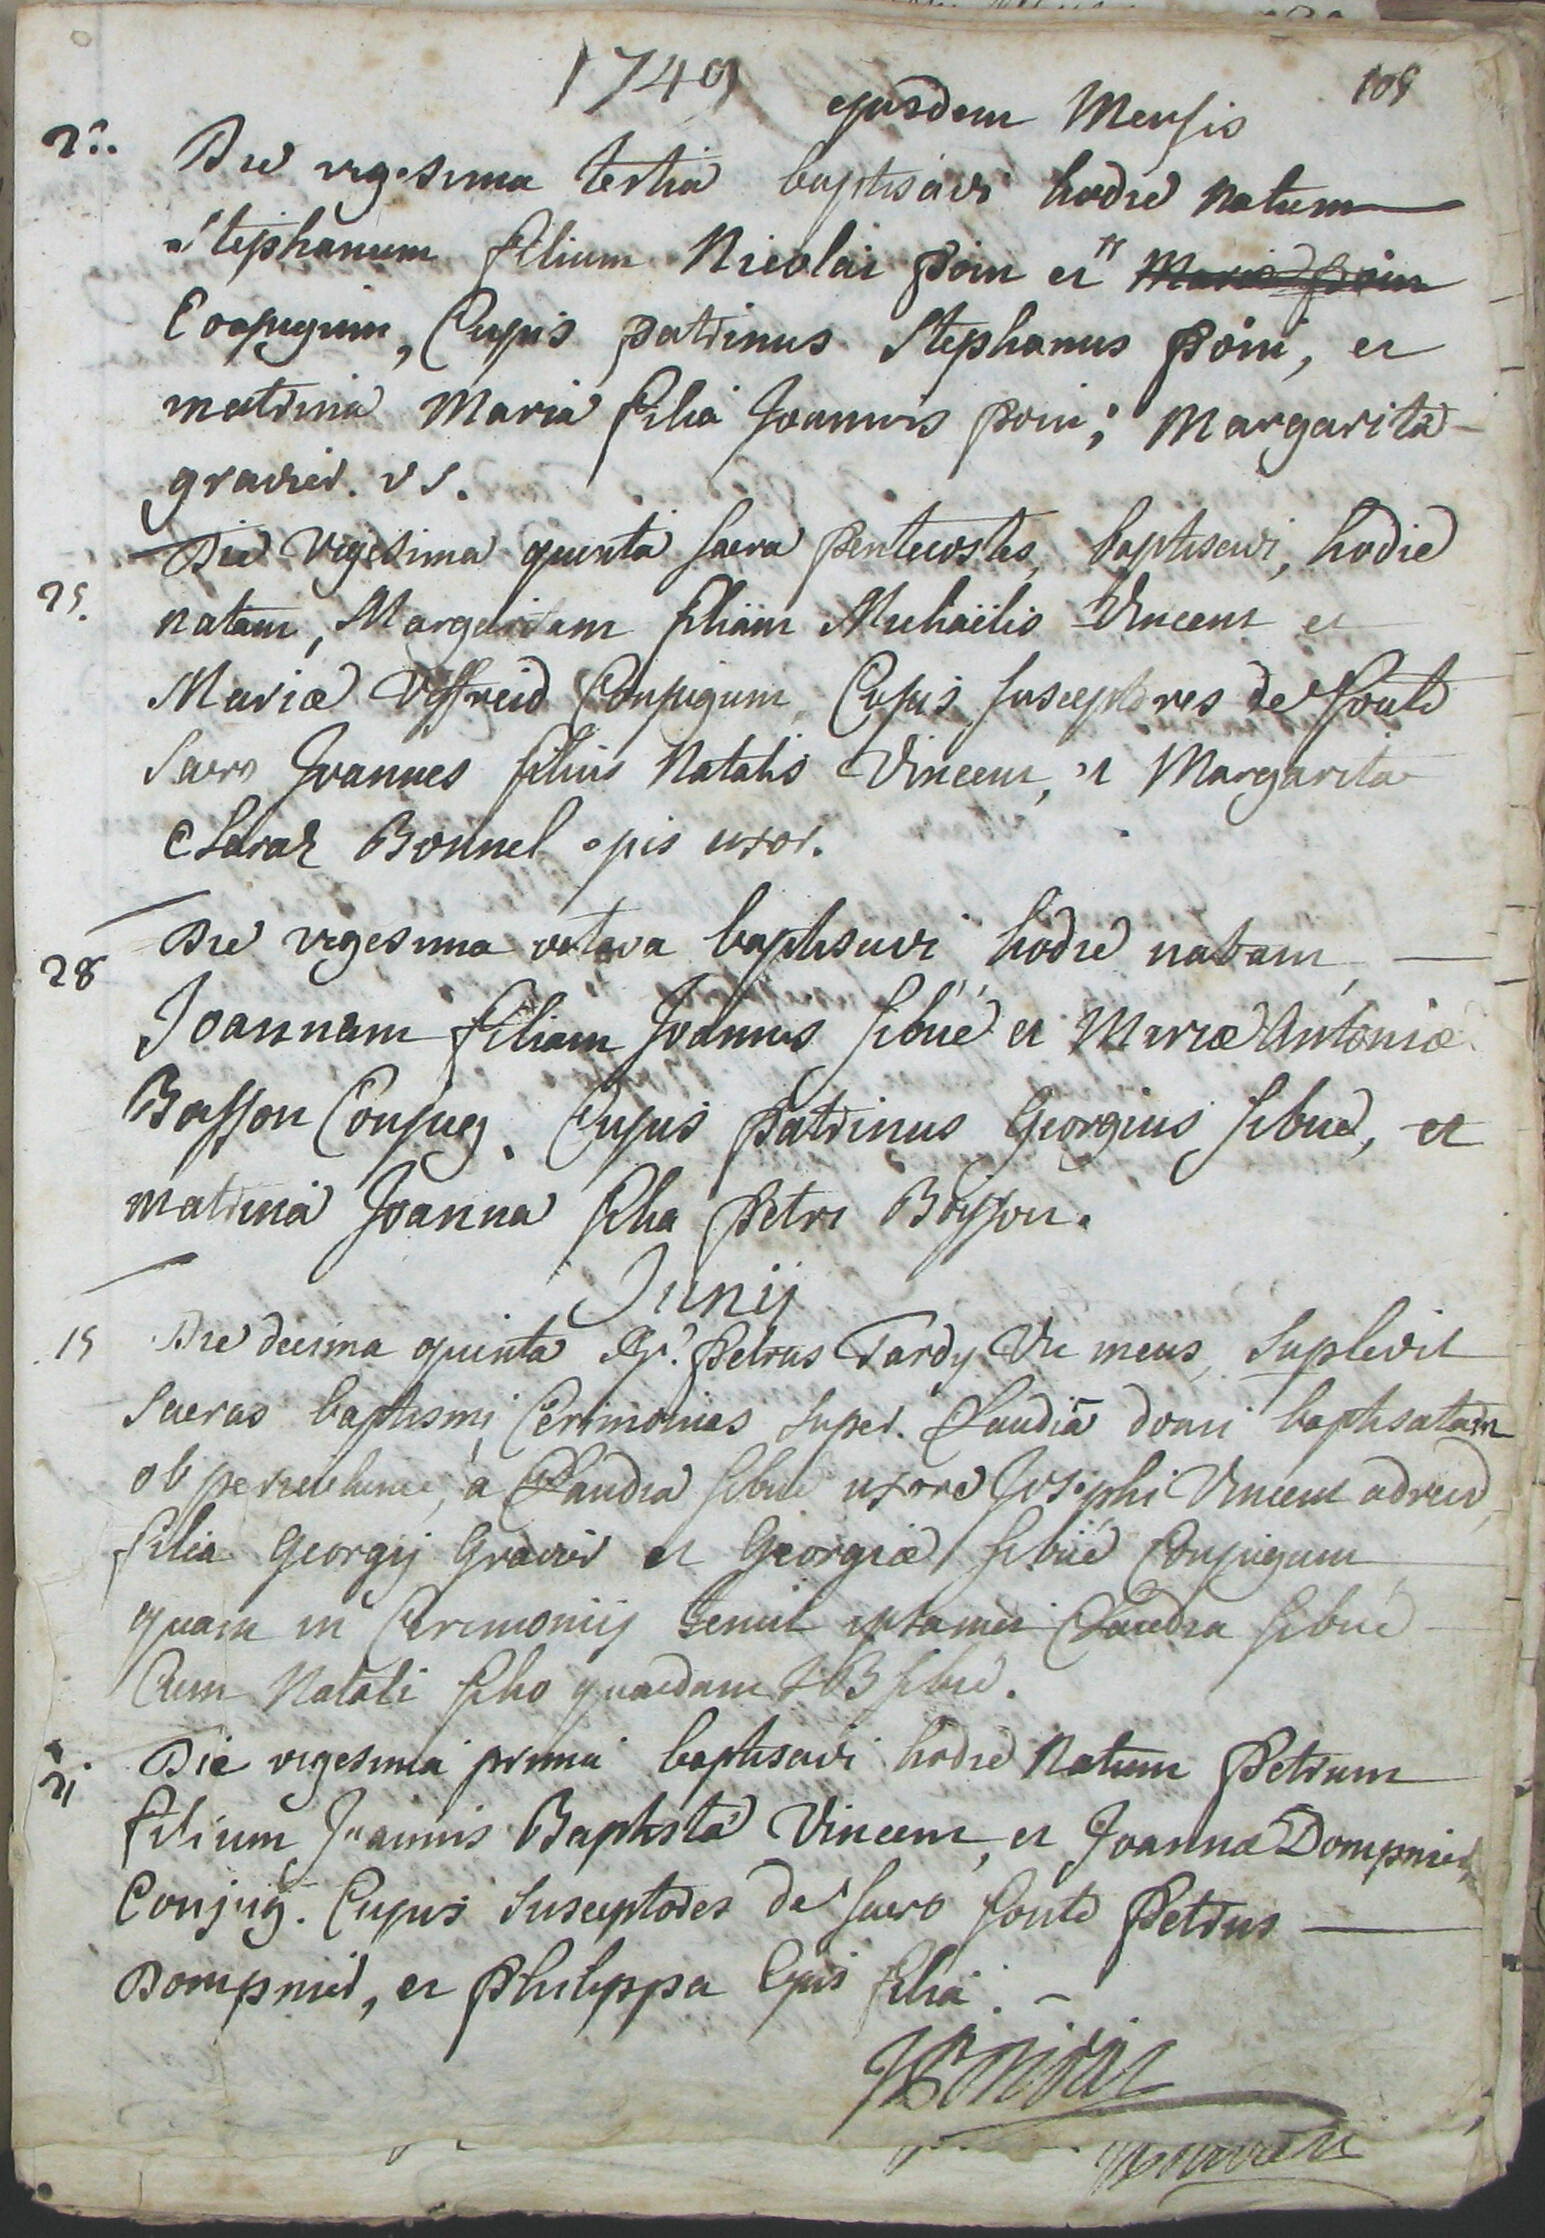 1749
109
ejusdem Mensis
23.
Die vigesima tertia baptisavi hodie natum
Stephanum filium Nicolai poin et
Conjugum, Cujus patrinus Stephanus poin, et
matrina Maria filia Joannis poin; Margarita
gravier. vs.
Die vigesima quinta sacra pentecostes, baptisavi, hodie
25.
natam, Margaritam filiam Michaëlis Vincent et
Mariæ Uffreid Conjugum, Cujus susceptores de fonte
Sacro Joannes filius Natalis Vincent, et Margarita
Bonnel ejus uxor.
Die vigesima octava baptisavi hodie natam
28
Joannam filiam Joannis sibué et Mariæ Antoniæ
Bosson Conjug. Cujus patrinus Georgius sibué, et
matrina Joanna filia Petri Bosson.
Junij
15 Die decima quinta Petrus Tardy Vic meus, suplevit
Sacras baptismi Cerimonias super Claudiã domi baptisatam
ob a Claudia sibué uxore Josephi Vincent
filia Georgij Gravier et Georgiæ sibüé Conjugum
quam in Cerimoniis tenuit Claudia sibué
Cum Natali filio quondam JB sibué.
21.
Die vigesima prima baptisavi hodie Natum Petrum
filium Joannis Baptista Vincent, et Joannæ Dompnier
Conjug. Cujus susceptores de sacro fonte Petrus
Dompnier, et Philippa Ejus filia.